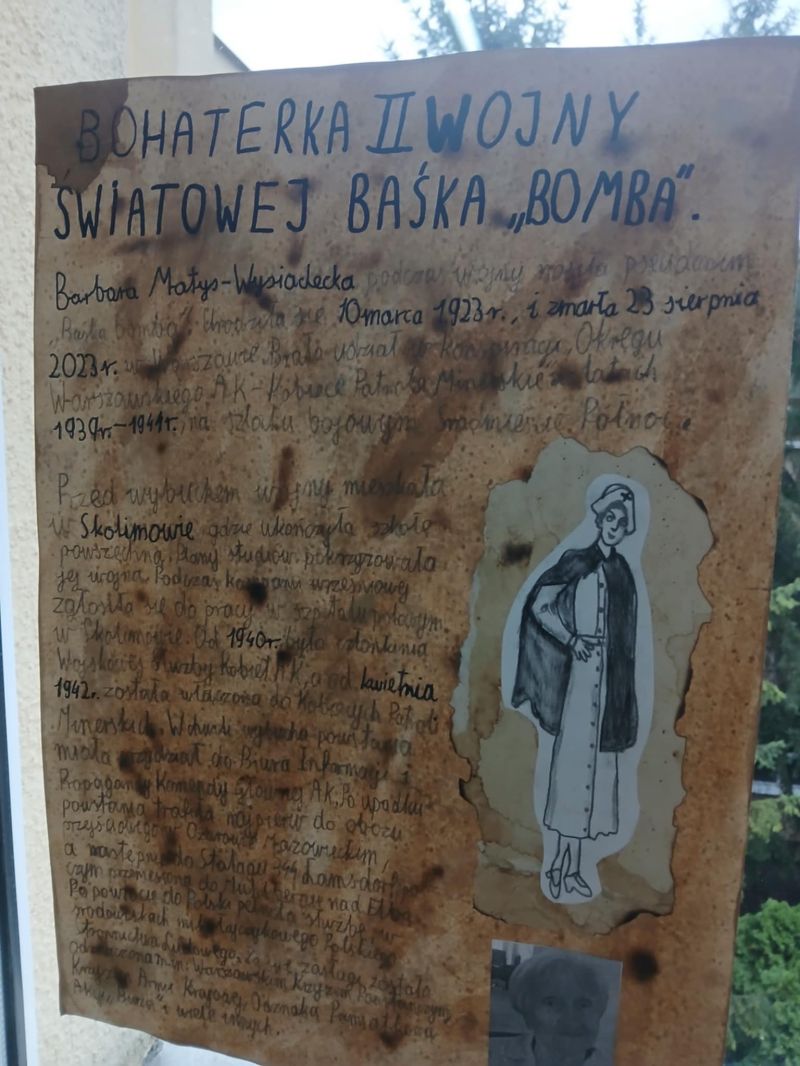 BOHATERKA II WOJNY
ŚWIATOWEJ BAŚKA „BOMBA".
Barbara Matys-Wysiadecka podczas wojny nosiła pseudonim
„Baśka bomba". Urodziła się 10 marca 1923r., i zmarła 23 sierpnia
2023r. w Warszawie. Brała udział w konspiracji, Okręgu
Warszawskiego AK - Kobiece Patrole Minerskie w latach
1939r.-1944r., na szlaku bojowym Śródmieście Północ.
Przed wybuchem wojny mieszkała
w Skolimowie gdzie ukończyła szkołę
powszechną. Plany studiów pokrzyżowała
jej wojna. Podczas kampanii wrześniowej
zgłosiła się do pracy w szpitalu polowym
w Skolimowie. Od 1940r. była członkinią
Wojskowej Służby Kobiet AK, a od kwietnia
1942r. została włączona do Kobiecych Patroli
Minerskich. W chwili wybuchu powstania
miała przydział do Biura Informacji i
Propagandy Komendy Głównej AK. Po upadku
powstania trafiła najpierw do obozu
przejściowego w Ożarowie Mazowieckim,
a następnie do Stalagu 344 Lamsdorf, po
czym przeniesiona do Muhlberg nad Elbą.
Po powrocie do Polski pełniła służbę w
środowiskach mikołajczykowego Polskiego
Stronnictwa Ludowego. Za swe zasługi została
odznaczona m.in: Warszawskim Krzyżem Powstańczym,
Krzyżem Armii Krajowej, Odznaką Pamiątkową
Akcji „Burza" i wiele innych.